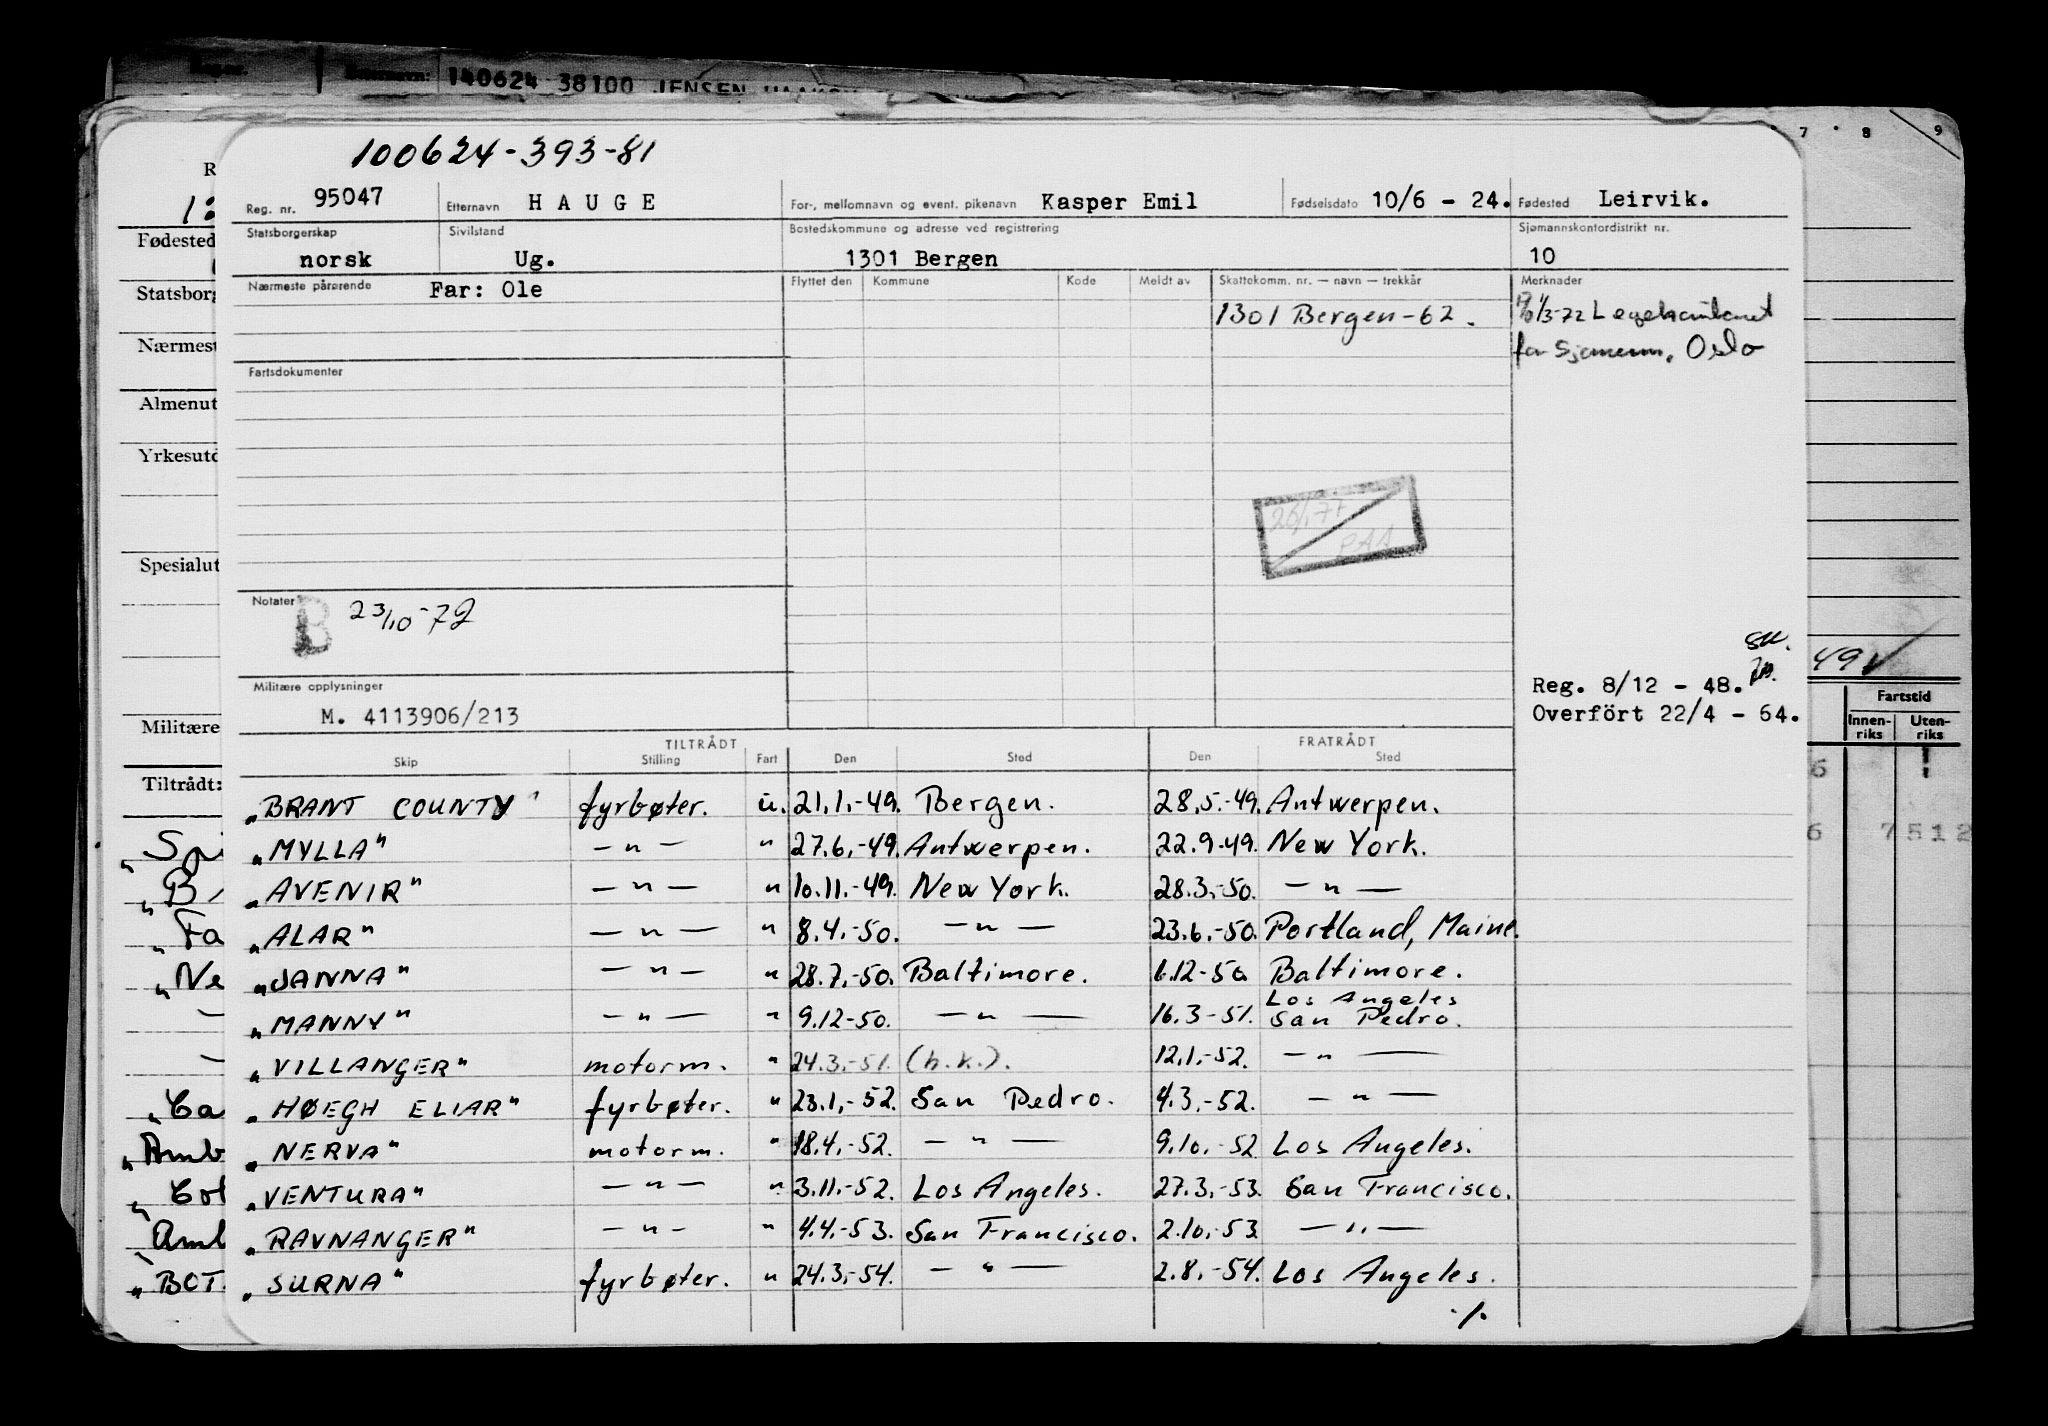 140624 38100 JENSEN
7 8 9
100624-393-81
Reg. nr. 95047 Etternavn HAUGE For-, mellomnavn og event. pikenavn Kasper Emil Fødselsdato 10/6 - 24. Fødested Leirvik.
Statsborgerskap norsk Sivilstand Ug. Bostedskommune og adresse ved registrering 1301 Bergen Sjømannskontordistrikt nr. 10
Nærmeste pårørende Far: Ole Flyttet den Kommune Kode Meldt av Skattekomm. nr. — navn — trekkår Merknader
1301 Bergen-62. 1/3-72 Legekontoret
for Sjømenn, Oslo
Fartsdokumenter
Notater B 23/10-72
Militære opplysninger
M. 4113906/213
Reg. 8/12 - 48.
Overfört 22/4 - 64.
TILTRÅDT FRATRÅDT
Skip Stilling Fart Den Sted Den Sted
"BRANT COUNTY" fyrbøter. u. 21.1.-49. Bergen. 28.5.-49. Antwerpen.
"MYLLA" —"— " 27.6.-49. Antwerpen. 22.9-49. New York.
"AVENIR" —"— " 10.11.-49. New York. 28.3.-50. —"—
"ALAR" —"— " 8.4.-50. —"— 23.6.-50. Portland, Maine.
"JANNA" —"— " 28.7.-50. Baltimore. 6.12-50 Baltimore.
"MANNY" —"— " 9.12-50. —"— 16.3-51. Los Angeles San Pedro.
"VILLANGER" motorm. " 24.3.-51. (h.k.). 12.1.-52. —"—
"HØEGH ELIAR" fyrbøter. " 23.1.-52. San Pedro. 4.3.-52. —"—
"NERVA" motorm. " 18.4.-52. —"— 9.10.-52 Los Angeles.
"VENTURA" —"— " 3.11.-52. Los Angeles. 27.3.-53. San Francisco.
"RAVNANGER" —"— " 4.4.-53. San Francisco. 2.10.-53 —"—
"SURNA" fyrbøter. " 24.3.-54. —"— 2.8.-54. Los Angeles.
./.
Fødested
Statsborg
Nærmest
Almenut
Yrkesutd
Spesialut
Militære
Tiltrådt:
"BOT.
49
Fartstid
Innen-riks Uten-riks
6
6 7512